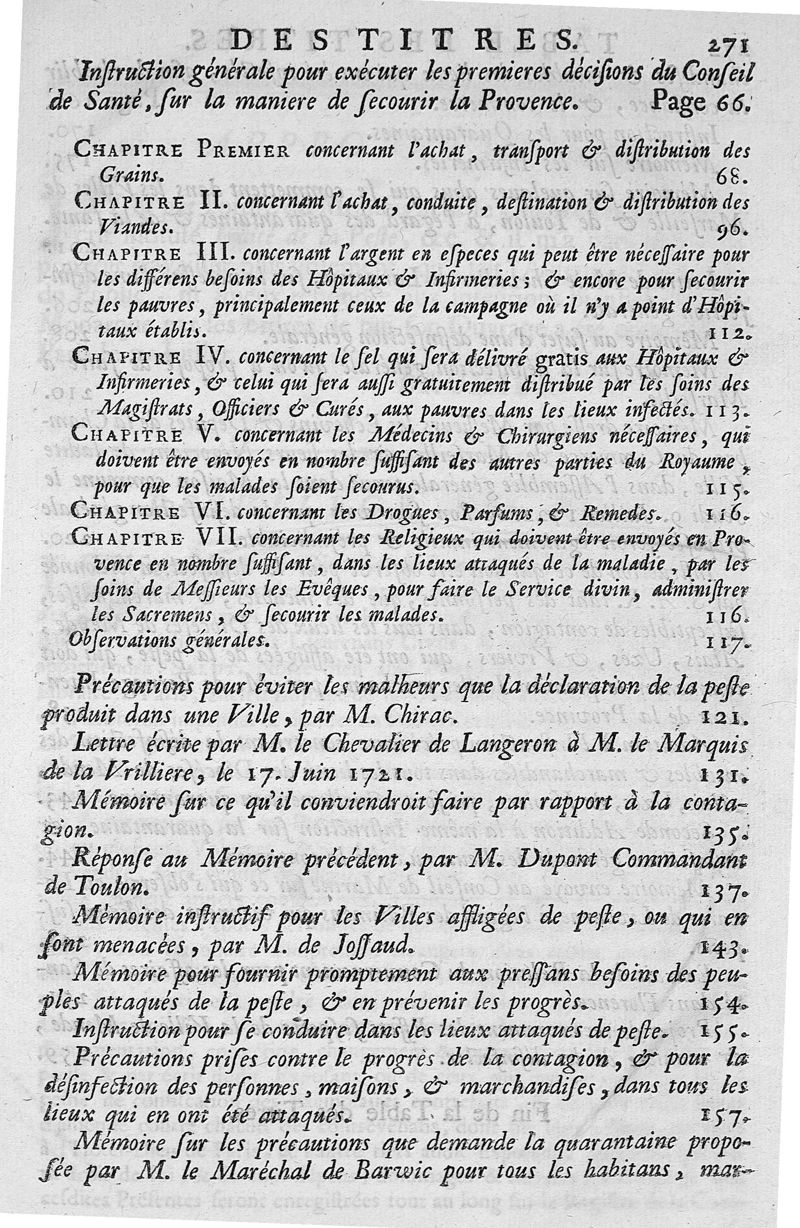 DES TITRES. 271
Inſtruction générale pour exécuter les premieres déciſions du Conſeil
de Santé, ſur la maniere de ſecourir la Provence. Page 66.
CHAPITRE PREMIER concernant l'achat, tranſport & diſtribution des
Grains. 68.
CHAPITRE II. concernant l'achat, conduite, deſtination & diſtribution des
Viandes. 96.
CHAPITRE III. concernant l'argent en eſpeces qui peut être néceſſaire pour
les différens beſoins des Hôpitaux & Infirmeries; & encore pour ſecourir
les pauvres, principalement ceux de la campagne où il n'y a point d'Hôpi-
taux établis. 112.
CHAPITRE IV. concernant le ſel qui ſera délivré gratis aux Hôpitaux &
Infirmeries, & celui qui ſera auſſi gratuitement diſtribué par les ſoins des
Magiſtrats, Officiers & Curés, aux pauvres dans les lieux infectés. 113.
CHAPITRE V. concernant les Médecins & Chirurgiens néceſſaires, qui
doivent être envoyés en nombre ſuffiſant des autres parties du Royaume,
pour que les malades ſoient ſecourus. 115.
CHAPITRE VI. concernant les Drogues, Parfums, & Remedes. 116.
CHAPITRE VII. concernant les Religieux qui doivent être envoyés en Pro-
vence en nombre ſuffiſant, dans les lieux attaqués de la maladie, par les
ſoins de Meſſieurs les Evêques, pour faire le Service divin, adminiſtrer
les Sacremens, & ſecourir les malades. 116.
Obſervations générales. 117.
Précautions pour éviter les malheurs que la déclaration de la peſte
produit dans une Ville, par M. Chirac. 121.
Lettre écrite par M. le Chevalier de Langeron à M. le Marquis
de la Vrilliere, le 17. Juin 1721. 131.
Mémoire ſur ce qu'il conviendroit faire par rapport à la conta-
gion. 135.
Réponſe au Mémoire précédent, par M. Dupont Commandant
de Toulon. 137.
Mémoire inſtructif pour les Villes affligées de peſte, ou qui en
ſont menacées, par M. de Joſſaud. 143.
Mémoire pour fournir promptement aux preſſans beſoins des peu-
ples attaqués de la peſte, & en prévenir les progrès. 154.
Inſtruction pour ſe conduire dans les lieux attaqués de peſte. 155.
Précautions priſes contre le progrès de la contagion, & pour la
déſinfection des perſonnes, maiſons, & marchandiſes, dans tous les
lieux qui en ont été attaqués. 157.
Mémoire ſur les précautions que demande la quarantaine propo-
ſée par M. le Maréchal de Barwic pour tous les habitans, mar-